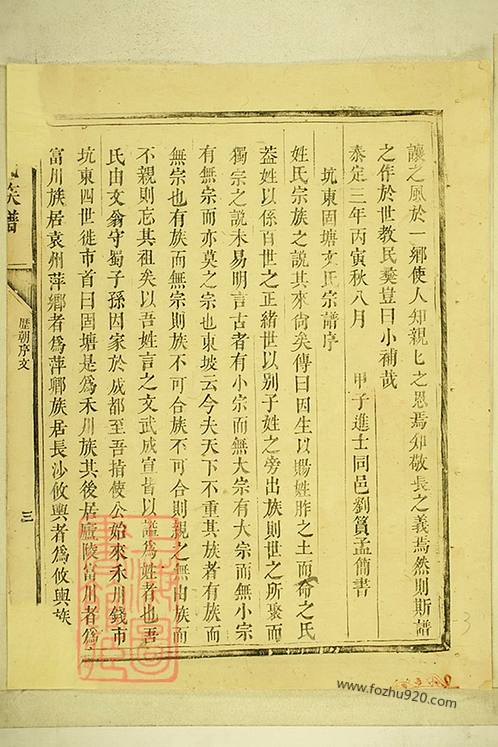 讓之風於一鄉使人知親匕之恩焉知敬長之義焉然則斯譜
之作於世敎民彜豈曰小補哉
泰定三年丙寅秋八月
甲子進士同邑劉簨孟簡書
坑東固塘文氏宗譜序
姓氏宗族之說其來尙矣傳曰因生以賜姓胙之土而命之氏
葢姓以係百世之正緒世以別子姓之旁出族則世之所聚而
獨宗之說未易明言古者有小宗而無大宗有大宗而無小宗
有無宗而亦莫之宗也東坡云今夫天下不重其族者有族而
無宗也有族而無宗則族不可合族不可合則親之無由族而
不親則忘其祖矣以吾姓言之文武成宣皆以謚爲姓者也吾
氏由文翁守蜀子孫因家於成都至吾揹使公始來禾川錢市
坑東四世徙市首曰固塘是爲禾川族其後居廬陵富川者爲
富川族居袁州萍鄉者爲萍鄉族居長沙攸輿者爲攸輿族
族譜
歷朝序文
三
3
www.fozhu920.com